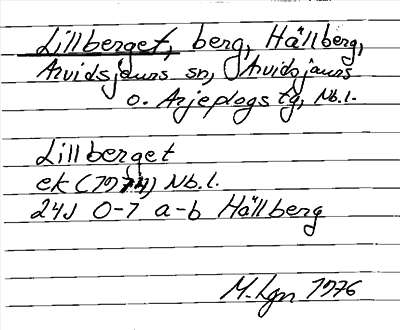 Lillberget, berg, Hällberg,
Arvidsjaurs sn, Arvidsjaurs
o. Arjeplogs tg, Nb.l.
Lillberget
ek (1974) Nb.l.
24J 0-1 a-b Hällberg
M. Lgn 1976